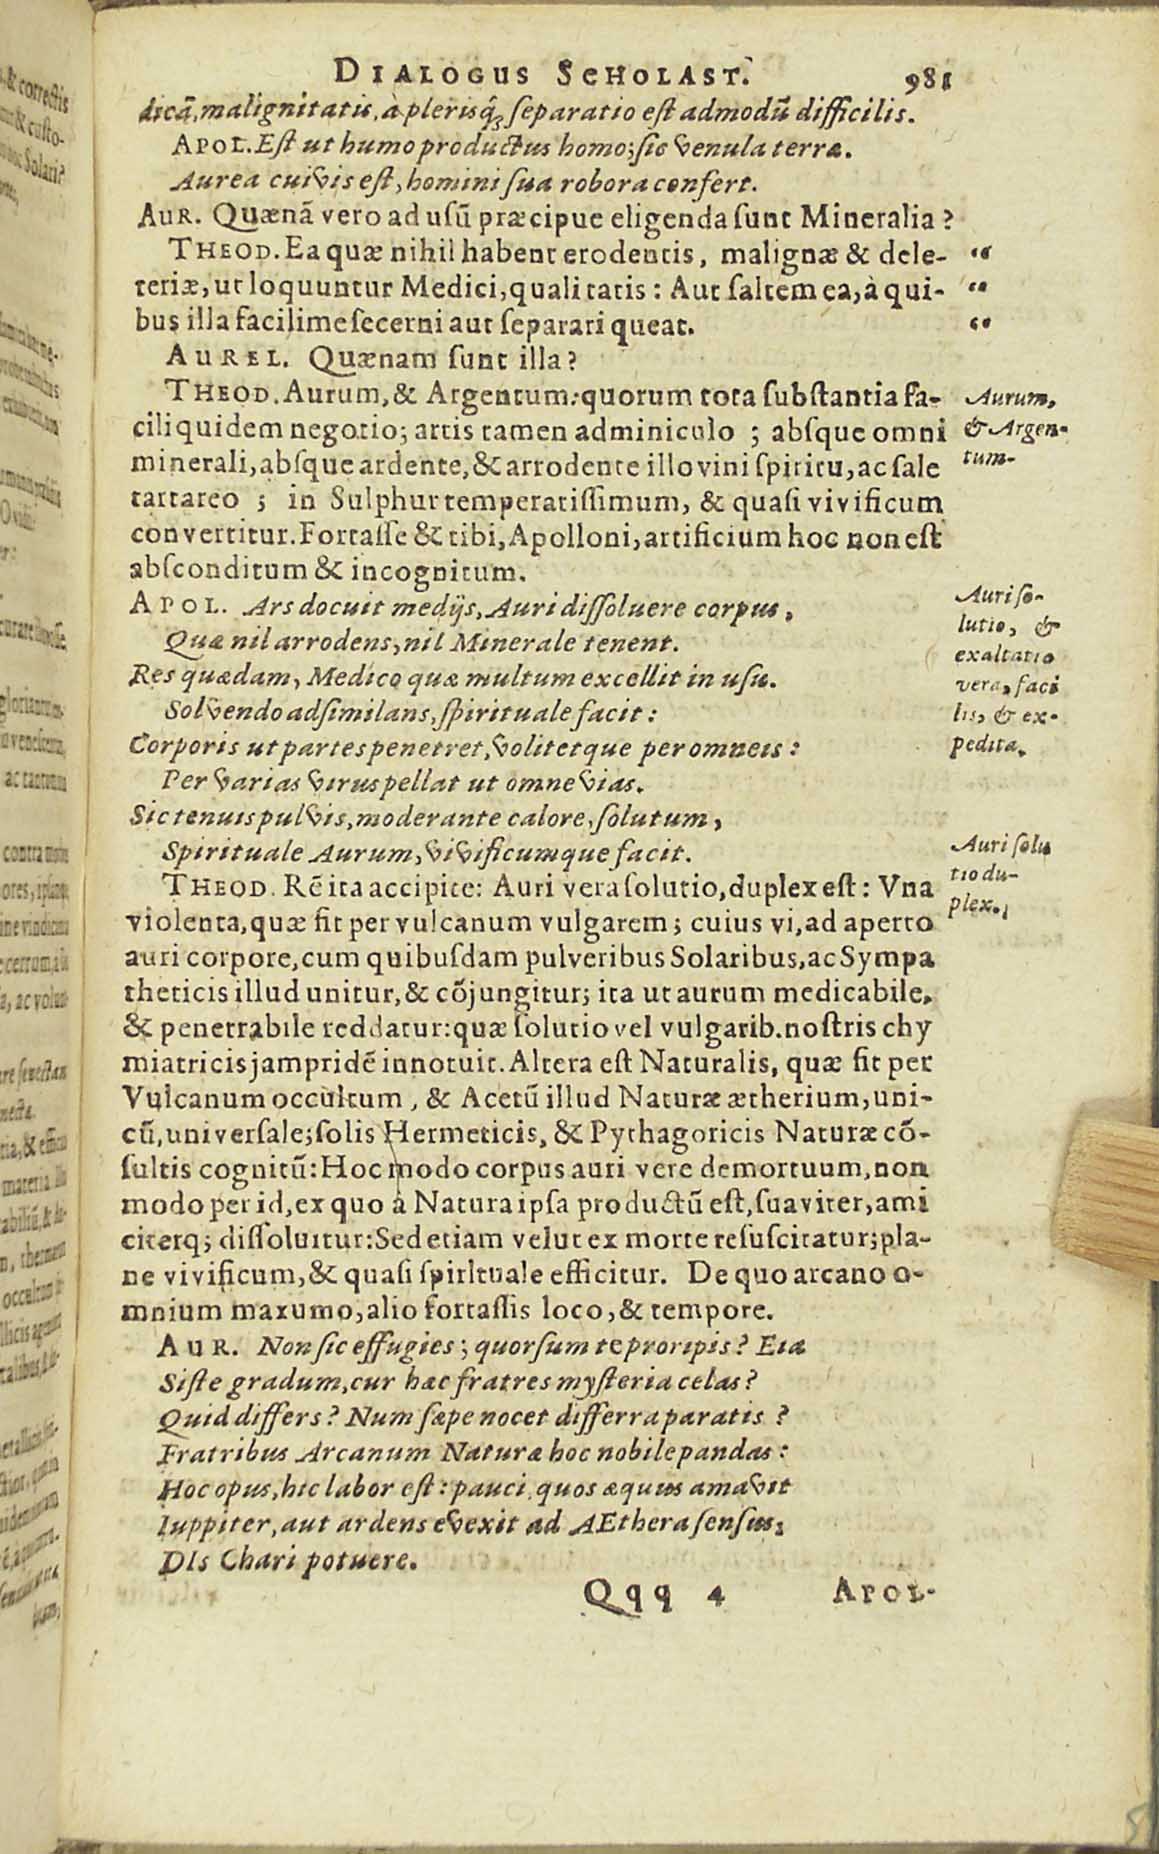 DIALOGUS SCHOLAST. 981
dicā, malignitatis, à plerisq́ʒ separatio est admodū difficilis.
APOL. Est ut humo productus homo; sic venula terræ.
Aurea cuivis est, homini sua robora confert.
AUR. Quænā vero ad usū præcipue eligenda sunt Mineralia?
THEOD. Ea quæ nihil habent erodentis, malignæ & dele- “
teriæ, ut loquuntur Medici, qualitatis: Aut saltem ea, à qui- “
bus illa facilime secerni aut separari queat. “
AUREL. Quænam sunt illa?
THEOD. Aurum, & Argentum: quorum tota substantia fa-
cili quidem negotio; artis tamen adminiculo ; absque omni
minerali, absque ardente, & arrodente illo vini spiritu, ac sale
tartareo ; in Sulphur temperatissimum, & quasi vivificum
convertitur. Fortasse & tibi, Apolloni, artificium hoc non est
absconditum & incognitum.
Aurum,
& Argen-
tum.
APOL. Ars docuit medijs, Auri dissoluere corpus,
Quæ nil arrodens, nil Minerale tenent.
Res quædam, Medico quæ multum excellit in usu.
Solvendo adsimilans, spirituale facit:
Corporis ut partes penetret, volitetque per omneis:
Per varias virus pellat ut omne vias.
Sic tenuis pulvis, moderante calore, solutum,
Spirituale Aurum, vivificumque facit.
Auri so-
lutio, &
exaltatio
vera, faci
lis, & ex-
pedita.
THEOD. Rē ita accipite: Auri vera solutio, duplex est: Vna
violenta, quæ fit per vulcanum vulgarem; cuius vi, ad aperto
auri corpore, cum quibusdam pulveribus Solaribus, ac Sympa
theticis illud unitur, & cōjungitur; ita ut aurum medicabile,
& penetrabile reddatur: quæ solutio vel vulgarib. nostris chy
miatricis jampridē innotuit. Altera est Naturalis, quæ fit per
Vulcanum occultum, & Acetū illud Naturæ ætherium, uni-
cū, universale; solis Hermeticis, & Pythagoricis Naturæ cō-
sultis cognitū: Hoc modo corpus auri vere demortuum, non
modo per id, ex quo à Natura ipsa productū est, suaviter, ami
citerq; dissoluitur: Sed etiam velut ex morte resuscitatur; pla-
ne vivificum, & quasi spirltuale efficitur. De quo arcano o-
mnium maxumo, alio fortassis loco, & tempore.
Auri solu
tio du-
plex.
AUR. Non sic effugies; quorsum te proripis? Eia
Siste gradum, cur hæc fratres mysteria celas?
Quid differs? Num sæpe nocet differra paratis ?
Fratribus Arcanum Naturæ hoc nobile pandas:
Hoc opus, hic labor est: pauci quos æquus amavit
Iuppiter, aut ardens evexit ad AEthera sensus,
DIs Chari potuere.
Qqq 4 APOL-